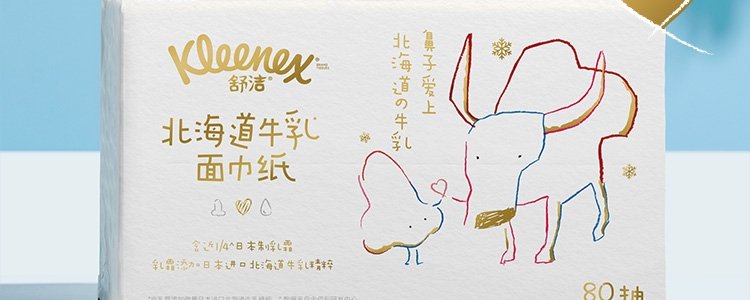 Kleenex®
BRAND
TISSUES
舒洁®
北海道牛乳
面巾纸
鼻子爱上
北海道の牛乳
含近1/4^日本制乳霜
乳霜添加日本进口北海道牛乳精粹
80抽